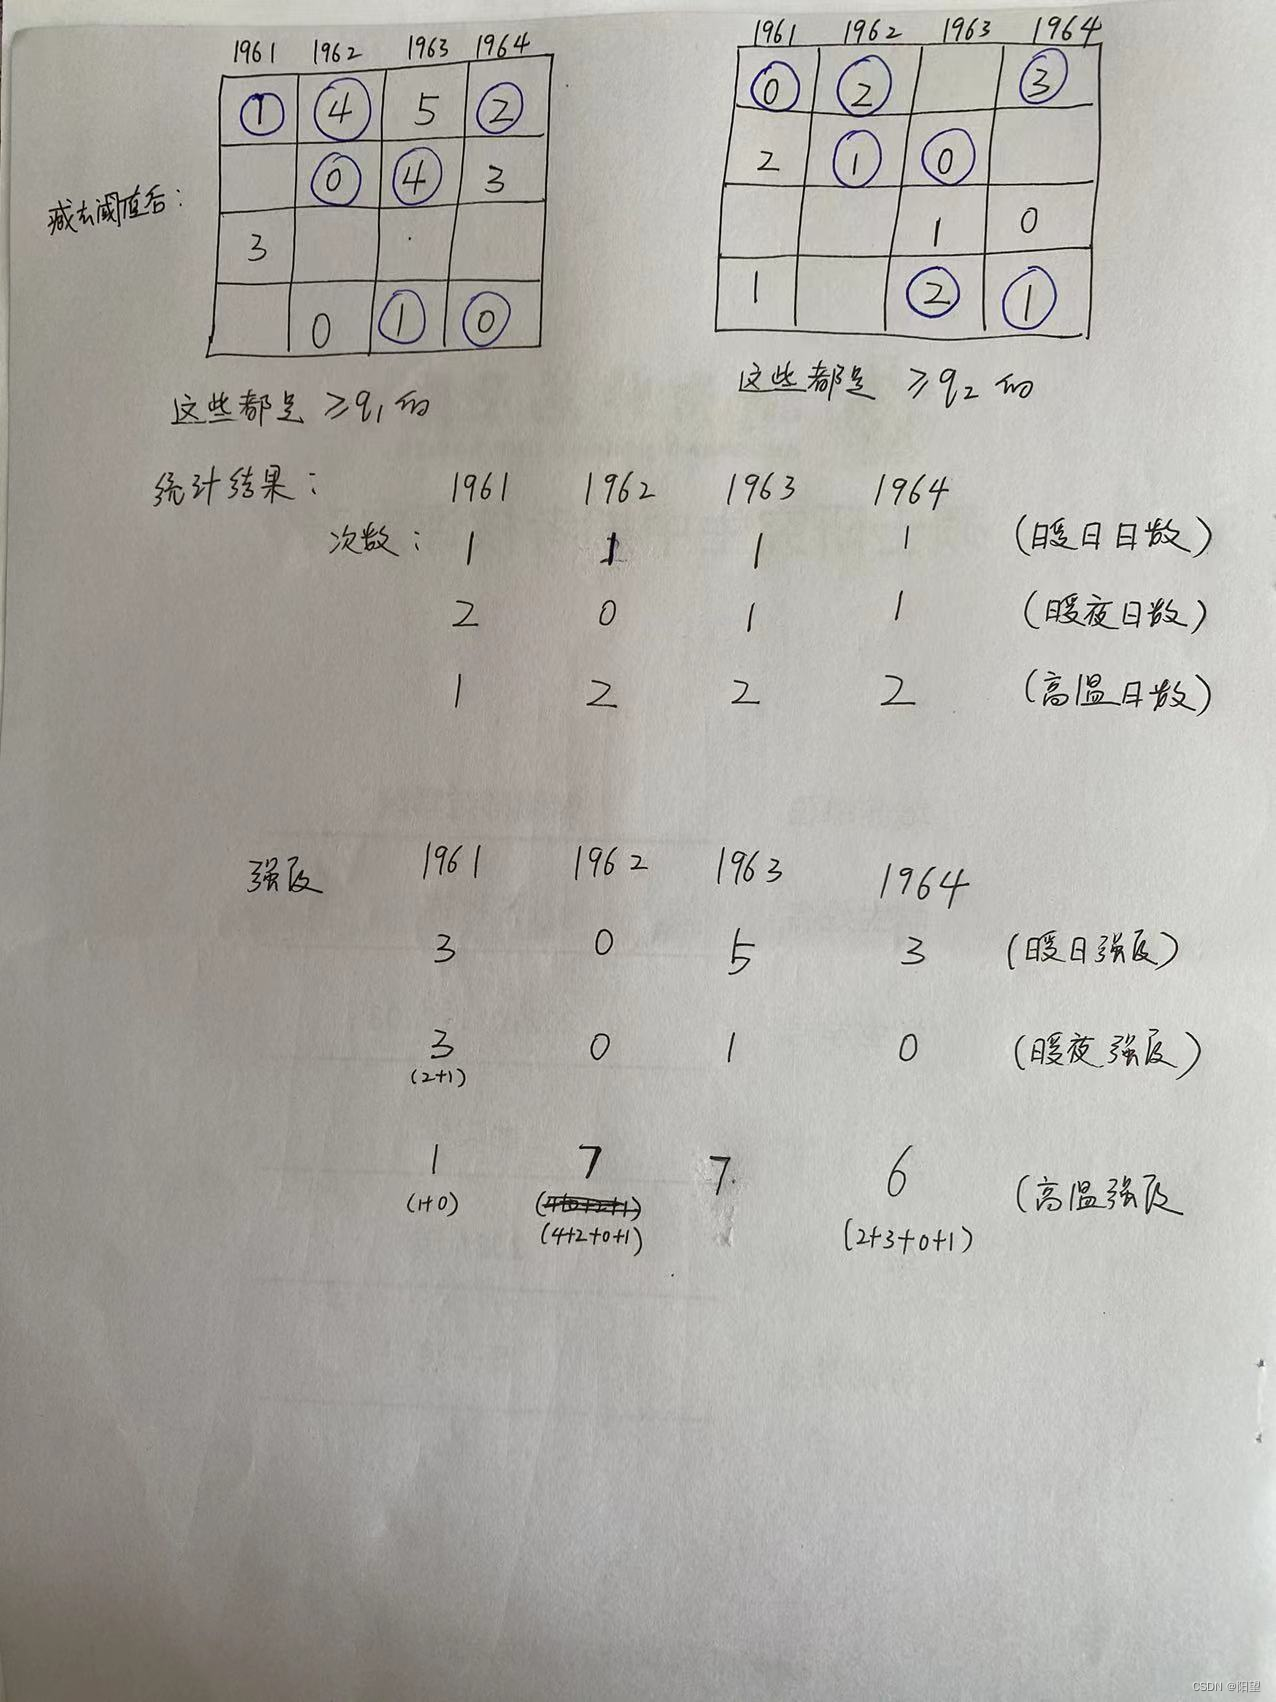 1961 1962 1963 1964
① ④ 5 ②
⓪ ④ 3
3
0 ① ⓪
减去阈值后:
1961 1962 1963 1964
⓪ ② ③
2 ① ⓪
1 0
1 ② ①
这些都是 ≥q₁的
这些都是 ≥q₂的
统计结果: 1961 1962 1963 1964
次数: 1 1 1 1 (暖日日数)
2 0 1 1 (暖夜日数)
1 2 2 2 (高温日数)
强度 1961 1962 1963 1964
3 0 5 3 (暖日强度)
3 0 1 0 (暖夜强度)
(2+1)
1 7 7 6 (高温强度
(1+0) (4+2+0+1) (2+3+0+1)
CSDN @阳望